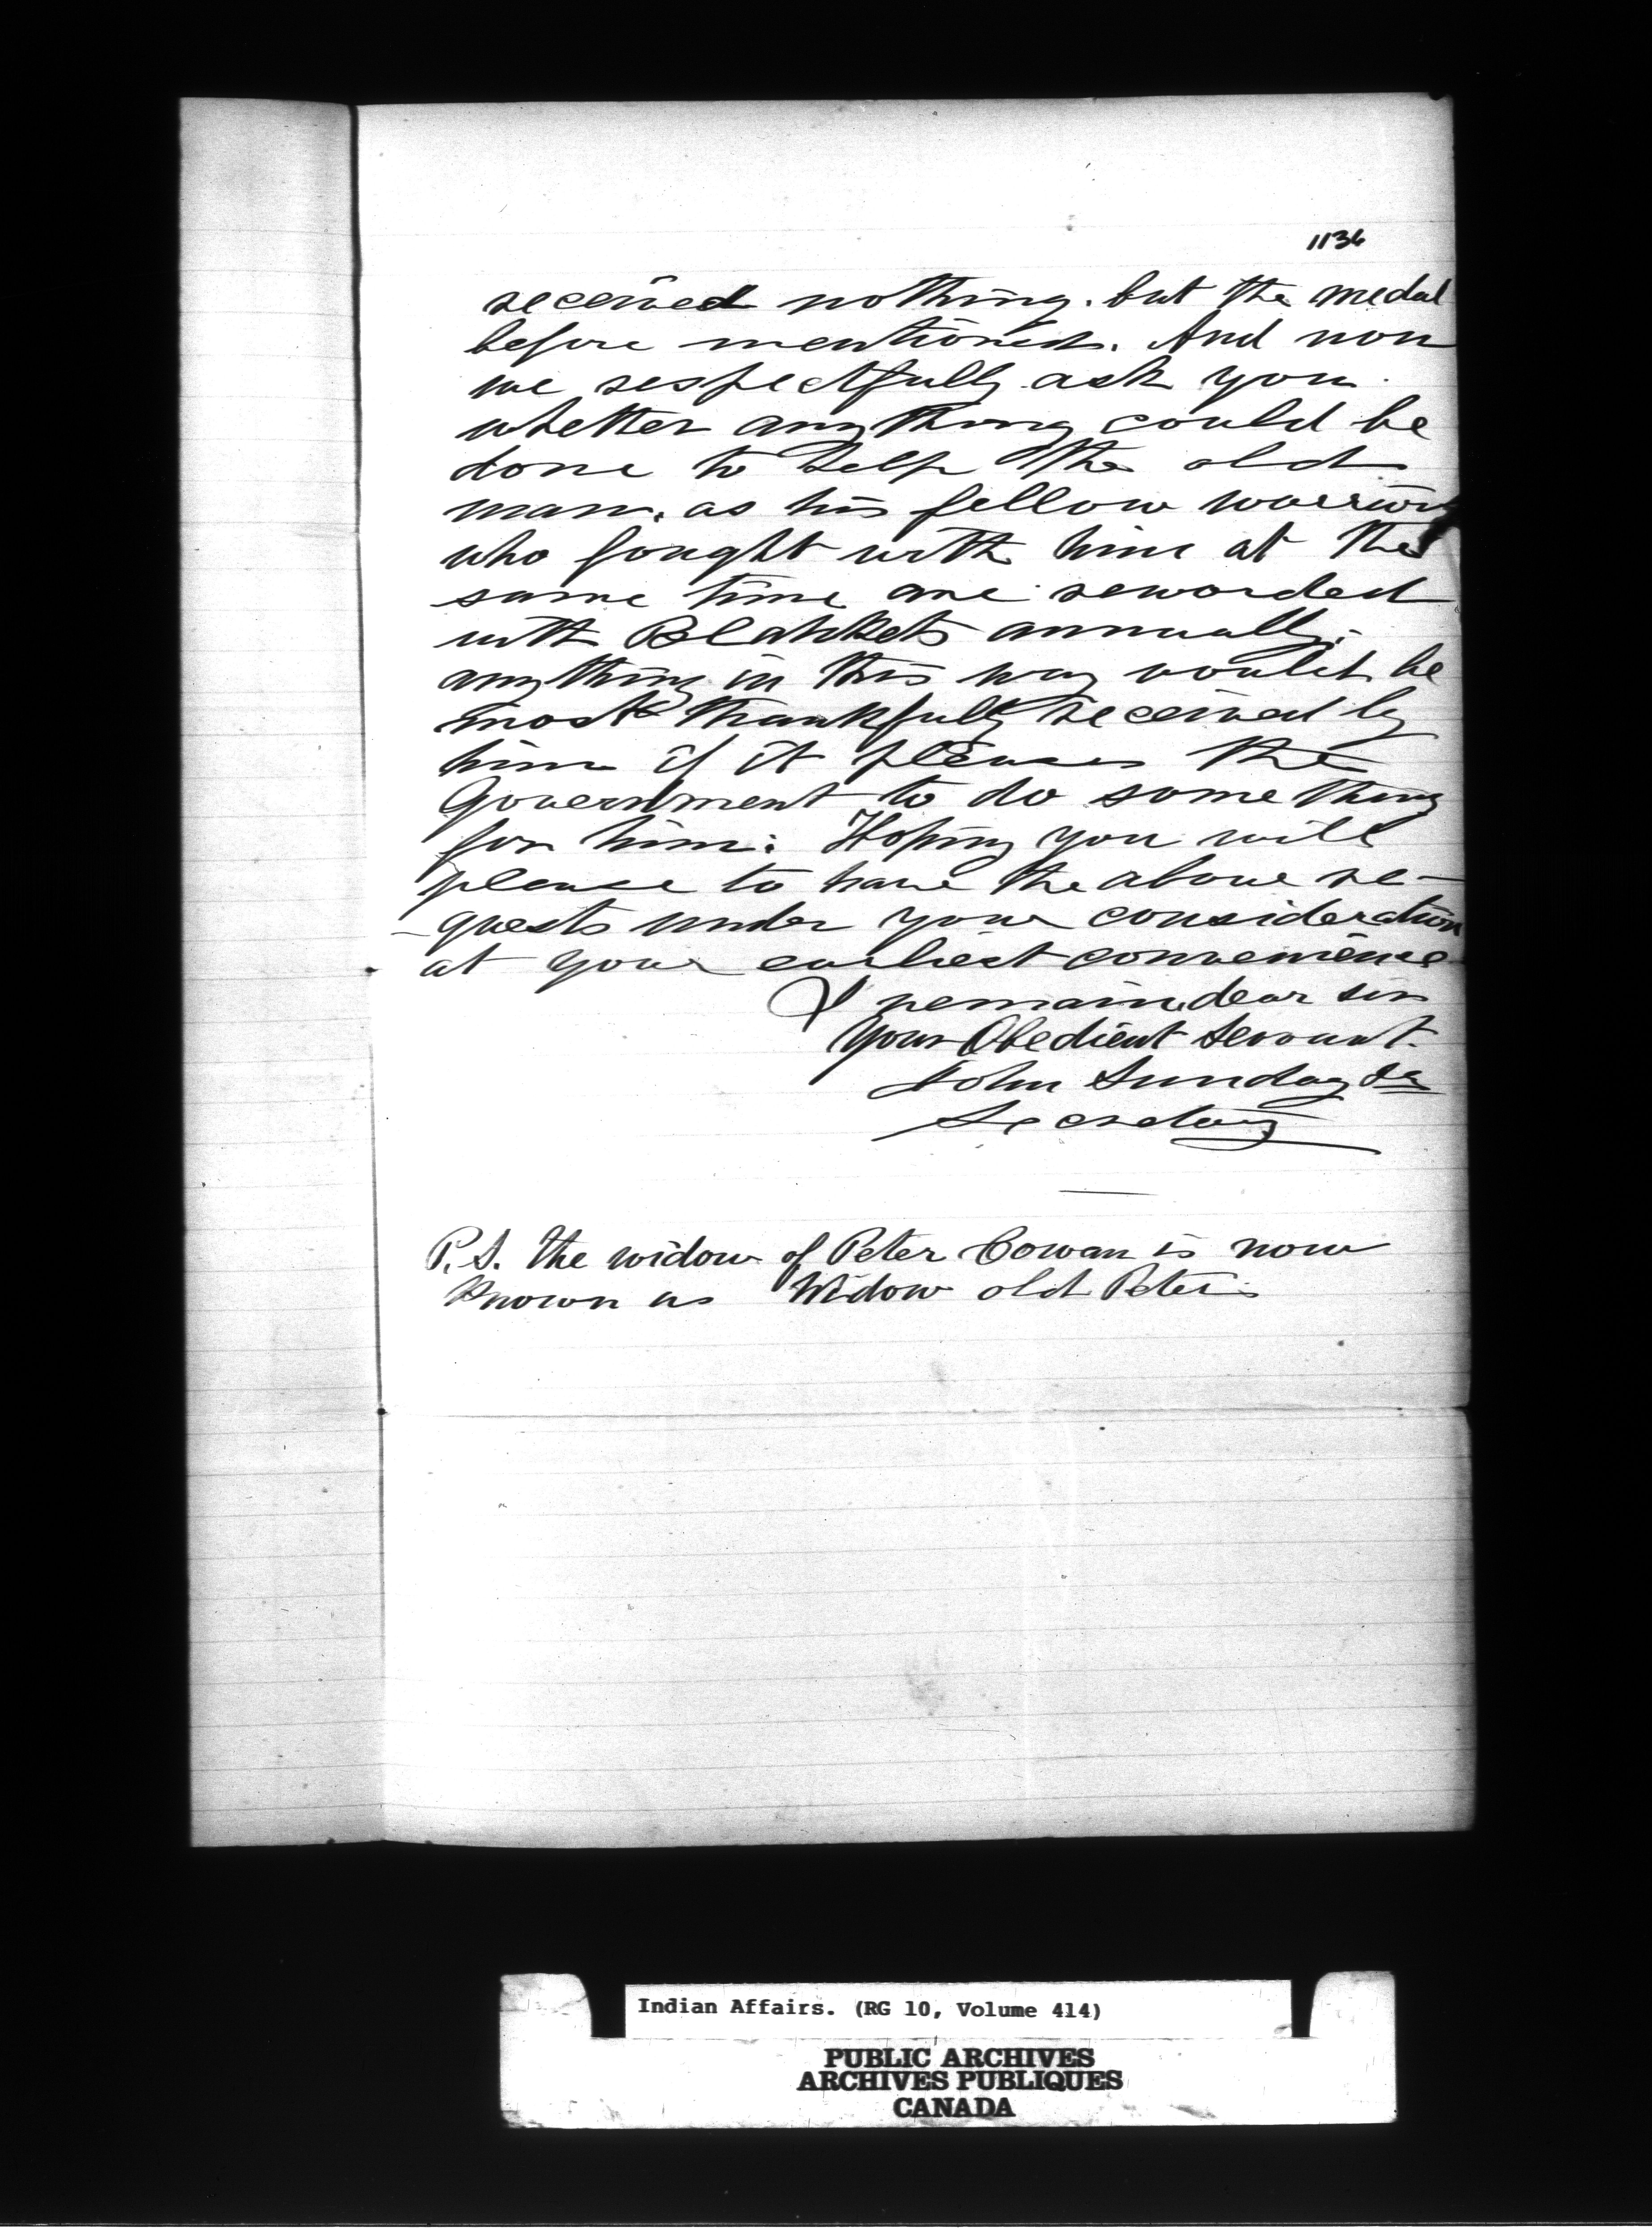 1136
received nothing. but the medal
before mentioned. And now
we respectfully ask you
whether anything could be
done to help the old
man. as his fellow warriors
who fought with him at the
same time are rewarded
with Blankets annually.
anything in this way would be
most thankfully received by
him if it pleases the
Government to do some thing
for him: Hoping you will
please to have the above re-
-quests under your consideration
at your earliest convenience
I remain dear sir
Your Obedient Servant.
John Sunday Jr
Secretary
P.S. the widow of Peter Cowan is now
known as Widow old Peter
Indian Affairs. (RG 10, Volume 414)
PUBLIC ARCHIVES
ARCHIVES PUBLIQUES
CANADA